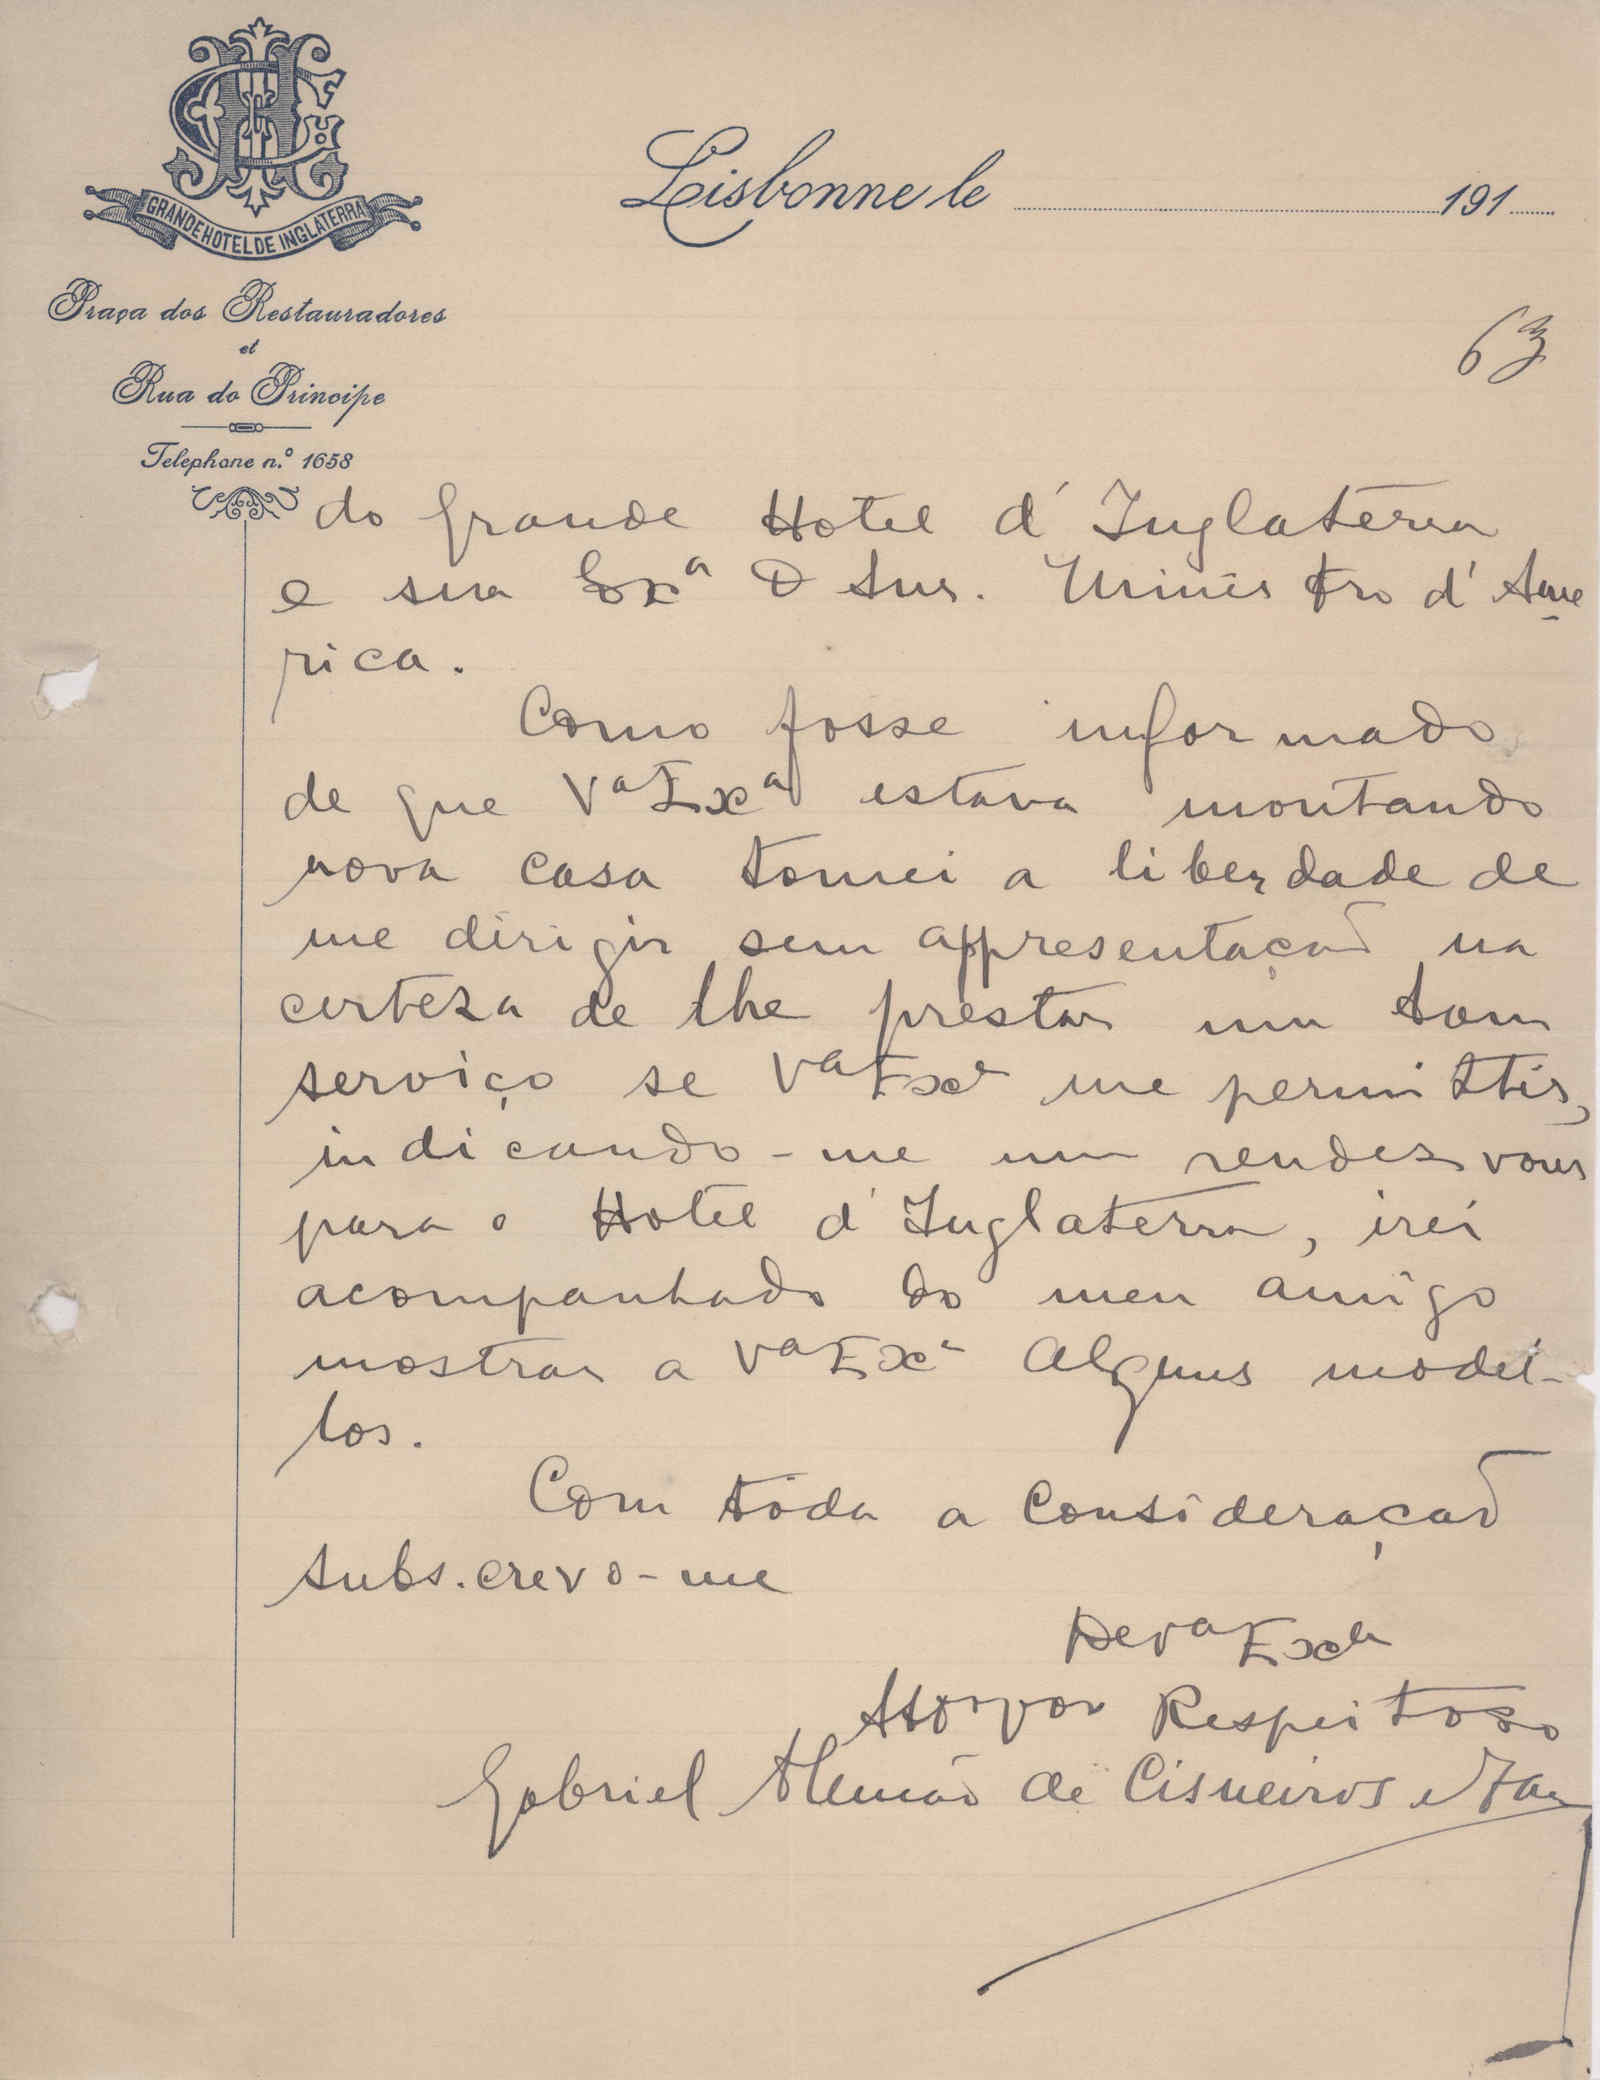 GRANDE HOTEL DE INGLATERRA
Praça dos Restauradores
et
Rua do Principe
Telephone n.º 1658
Lisbonne le 191
63
do Grande Hotel d'Inglaterra
e sua Exª O Snr. Ministro d'Ame
rica.
Como fosse informado
de que Vª Exª estava montando
nova casa tomei a liberdade de
me dirigir sem appresentação na
certeza de lhe prestar um bom
serviço se Vª Exª me permittir,
indicando-me um rendez vous
para o Hotel d'Inglaterra, irei
acompanhado do meu amigo
mostrar a Vª Exª alguns model-
los.
Com toda a consideração
subs.crevo-me
De Vª Exª
Respeitoso
Gabriel Alemão de Cisneiros e